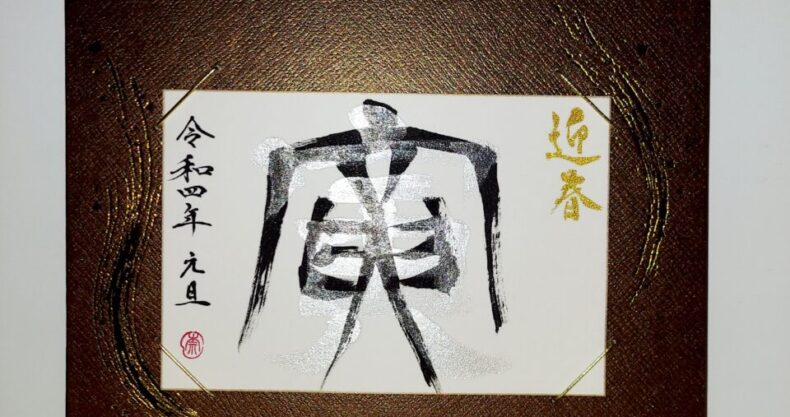 迎春
寅
令和四年 元旦